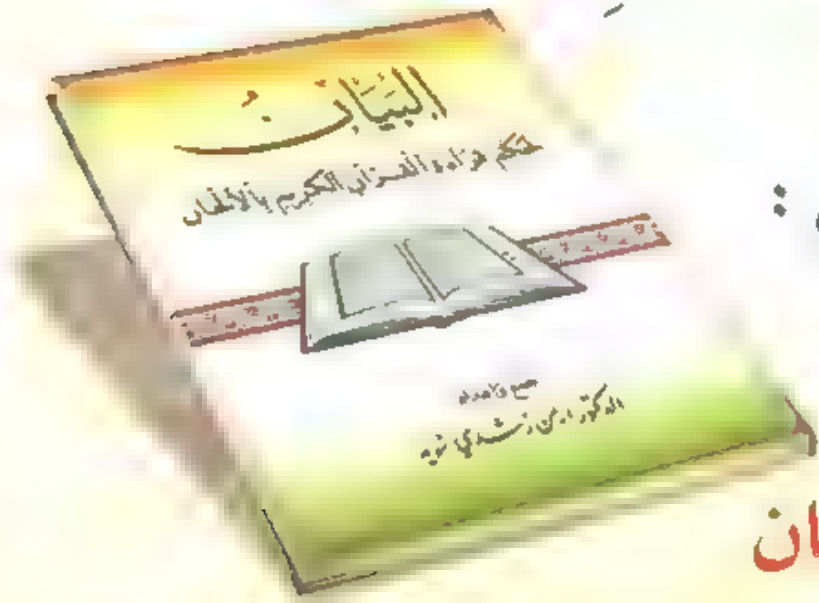 البَيَانُ
لحكم قراءة القرآن الكريم بالألحان
جمع وإعداد
الدكتور أيمن رشدي سويد
:
ان